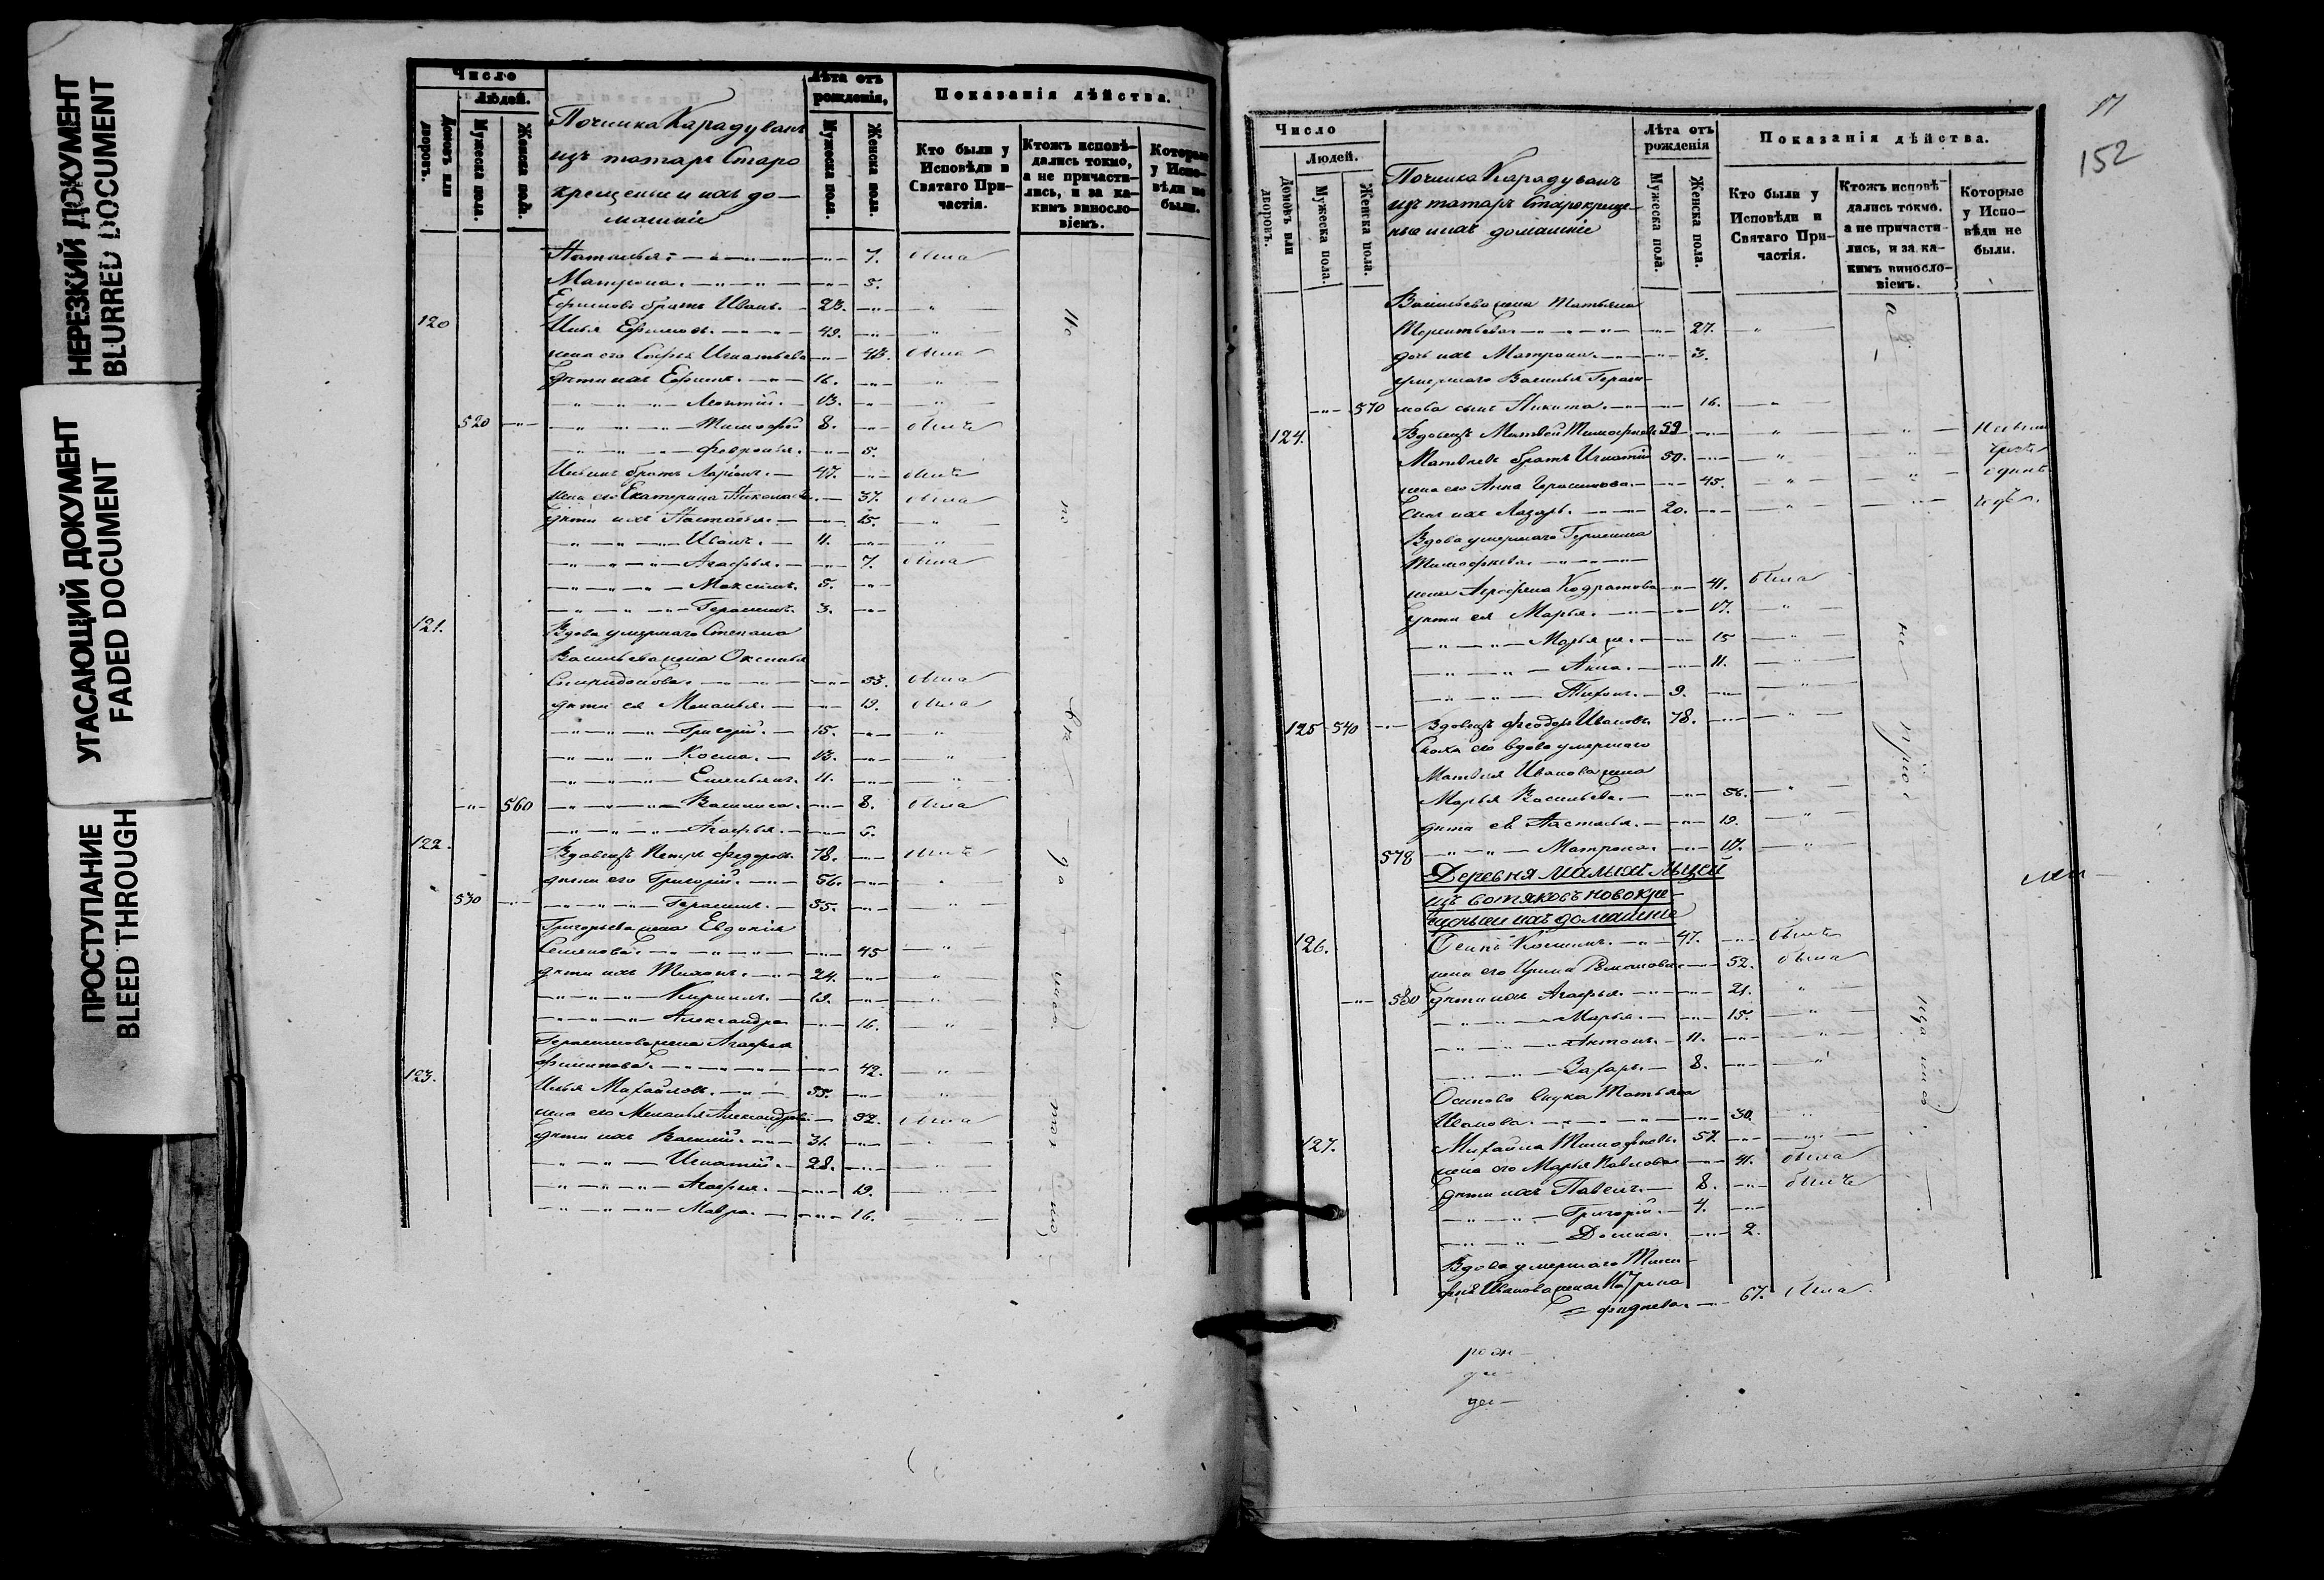 НЕРЕЗКИЙ ДОКУМЕНТ
BLURRED DOCUMENT
УГАСАЮЩИЙ ДОКУМЕНТ
FADED DOCUMENT
ПРОСТУПАНИЕ
BLEED THROUGH
Число
Людей.
Домовъ или дворовъ.
Мужеска пола.
Женска пола.
Починка Карадуванъ
изъ татаръ Старо
крещены и ихъ до-
машніе
Лѣта отъ
рожденія,
Мужеска пола.
Женска пола.
Показанія дѣйства.
Кто были у
Исповѣди и
Святаго При-
частія.
Ктожъ исповѣ-
дались токмо,
а не причасти-
лись, и за ка-
кимъ виносло-
віемъ.
Которые
у Испо-
вѣди не
были.
Наталья 7. была
Матрона. 5.
Ефимовъ братъ Иванъ. 23. "
120 Илья Ефимовъ. 49. "
жена его Софья Игнатьева 43. была
дѣти ихъ Ефимъ. 16. "
Леонтій. 13. "
520 Тимофей 8. былъ
Февронья. 5.
Ильинъ братъ Ларіонъ. 47. былъ
жена его Екатерина Николаева. 37. была
дѣти ихъ Настасья. 15. "
Иванъ. 11. "
Агафья. 7. была
Максимъ. 5.
Герасимъ. 3.
121. Вдова умершаго Степана
Васильева жена Оксинья
Спиридонова. 53. была
дѣти ея Меланья. 19. была
Григорій. 15. "
Косма. 13. "
Емельянъ. 11. "
560 Василиса. 8. была
Агафья. 5.
122. Вдовецъ Петръ Федоровъ. 78. былъ
дѣти его Григорій. 56. "
530 Герасимъ. 35. "
Григорьева жена Евдокія
Семенова. 45 "
дѣти ихъ Тихонъ. 24. "
Кирилъ. 19. "
Александра 16. "
Герасимова жена Агафья
Филипова. 42. "
123. Илья Михайловъ. 55. "
жена его Меланья Александрова 52. была
дѣти ихъ Василій. 31. "
Игнатій. 28. "
Агафья. 19. "
Мавра. 16. "
17
152
Число
Людей.
Домовъ или дворовъ.
Мужеска пола.
Женска пола.
Починка Карадуванъ
изъ татаръ Старокреще-
ны и ихъ домашніе
Лѣта отъ
рожденія
Мужеска пола.
Женска пола.
Показанія дѣйства.
Кто были у
Исповѣди и
Святаго При-
частія.
Ктожъ исповѣ-
дались токмо.
а не причасти-
лись, и за ка-
кимъ виносло-
віемъ.
Которые
у Испо-
вѣди не
были.
Васильева жена Татьяна
Терентьева 27. "
дочь ихъ Матрона. 3.
умершаго Василья Гераси-
570 мова сынъ Никита. 16. "
124. Вдовецъ Матвей Тимофеевъ 59. " "
Матвѣевъ братъ Игнатій 50. " "
жена его Анна Герасимова. 45. " "
Сынъ ихъ Лазарь. 20. " "
Вдова умершаго Герасима
Тимофеева.
жена Агрофена Кодратова 41. была
дѣти ея Марья. 17. "
Марья же. 15 "
Анна. 11. "
Тихонъ. 9. "
125 540 Вдовецъ Феодоръ Ивановъ. 78. "
Сноха его вдова умершаго
Матвея Иванова жена
Марья Васильева. 56. "
дѣти ея Настасья. 19. "
578 Матрона. 17. "
Деревня Малыхъ Лызей
изъ вотяковъ новокре-
щены и ихъ домашніе
126. Осипъ Косминъ. 47. былъ
жена его Ирина Романова 52. была
580 дѣти ихъ Агафья. 21. "
Марья. 15. "
Антонъ. 11. "
Захаръ. 8. "
Осипова внука Татьяна
Иванова. 30. "
127. Михайла Тимофеевъ. 57. "
жена его Марья Павлова 41. была
дѣти ихъ Павелъ. 8. былъ
Григорій. 4.
Домна. 2.
Вдова умершаго Тимо-
фея Иванова жена
67. была